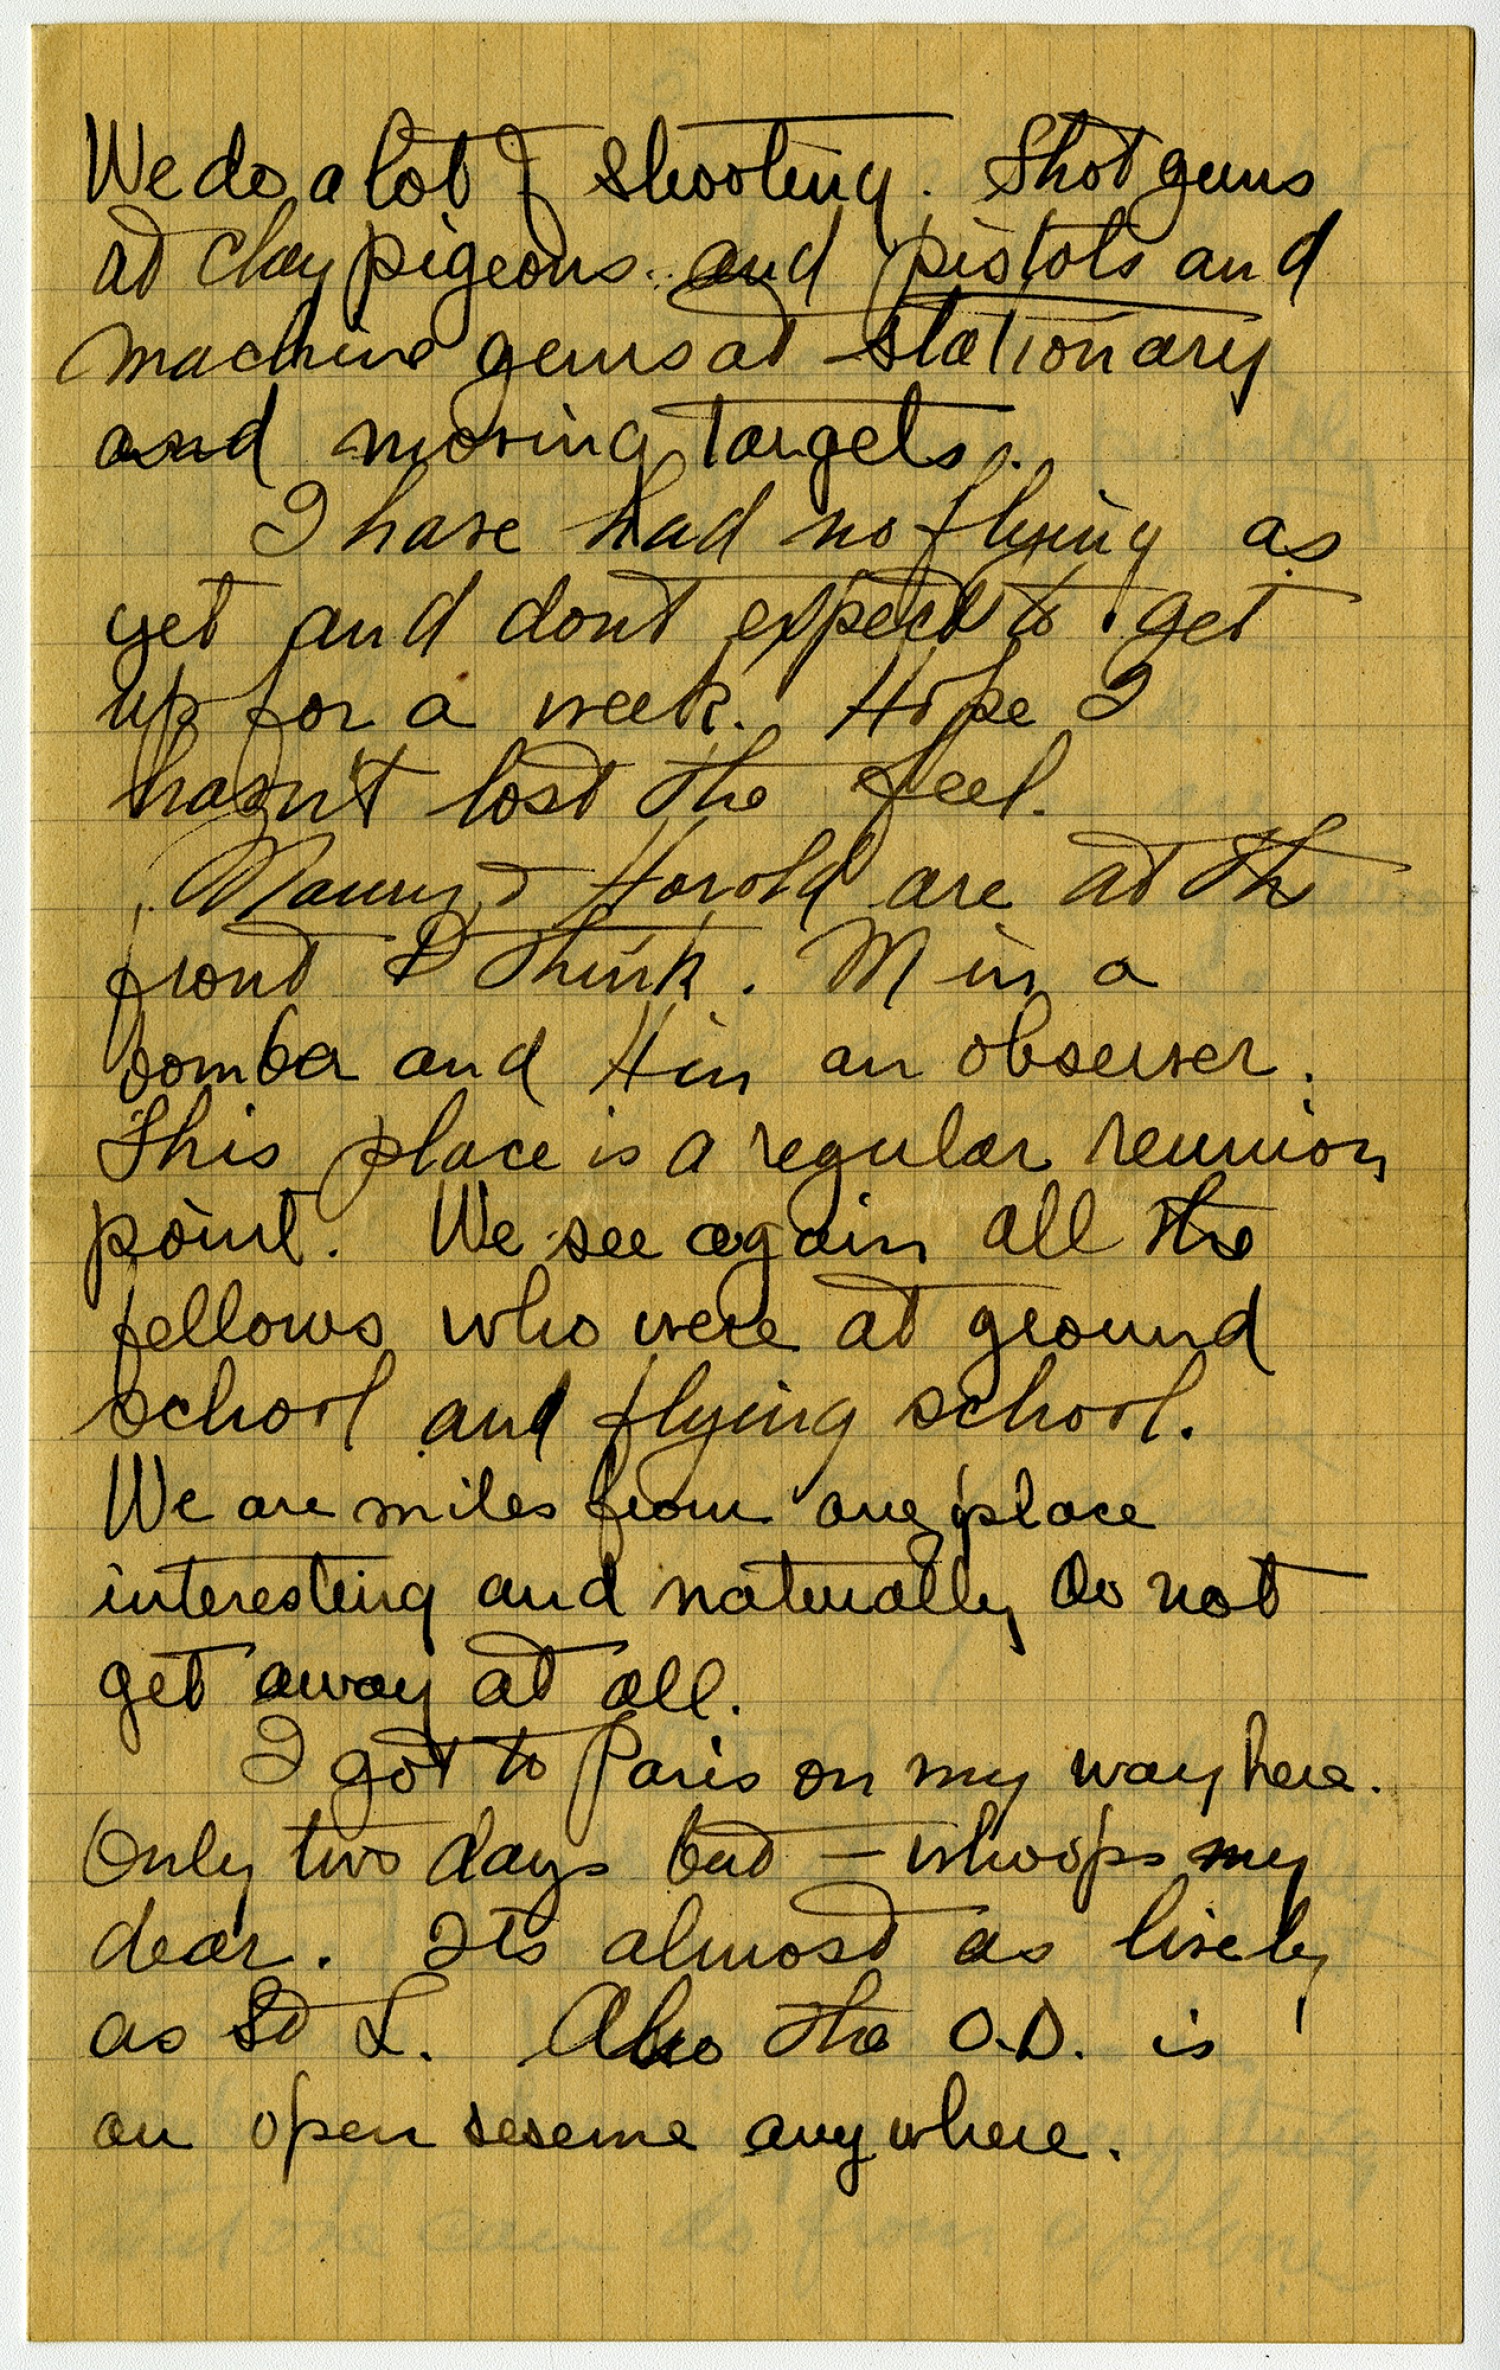 We do a lot of shooting. Shot guns
at clay pigeons. and pistols and
machine guns at stationary
and moving targets.
I have had no flying as
yet and dont expect to get
up for a week. Hope I
hasn't lost the feel.
& Harold are at the
front I think. M in a
bomber and H in an observer.
This place is a regular reunion
point. We see again all the
fellows who were at ground
school and flying school.
We are miles from any place
interesting and naturally do not
get away at all.
I got to Paris on my way here.
Only two days but – whoops my
dear. Its almost as lively
as St L. Also the O.D. is
an open seseme anywhere.